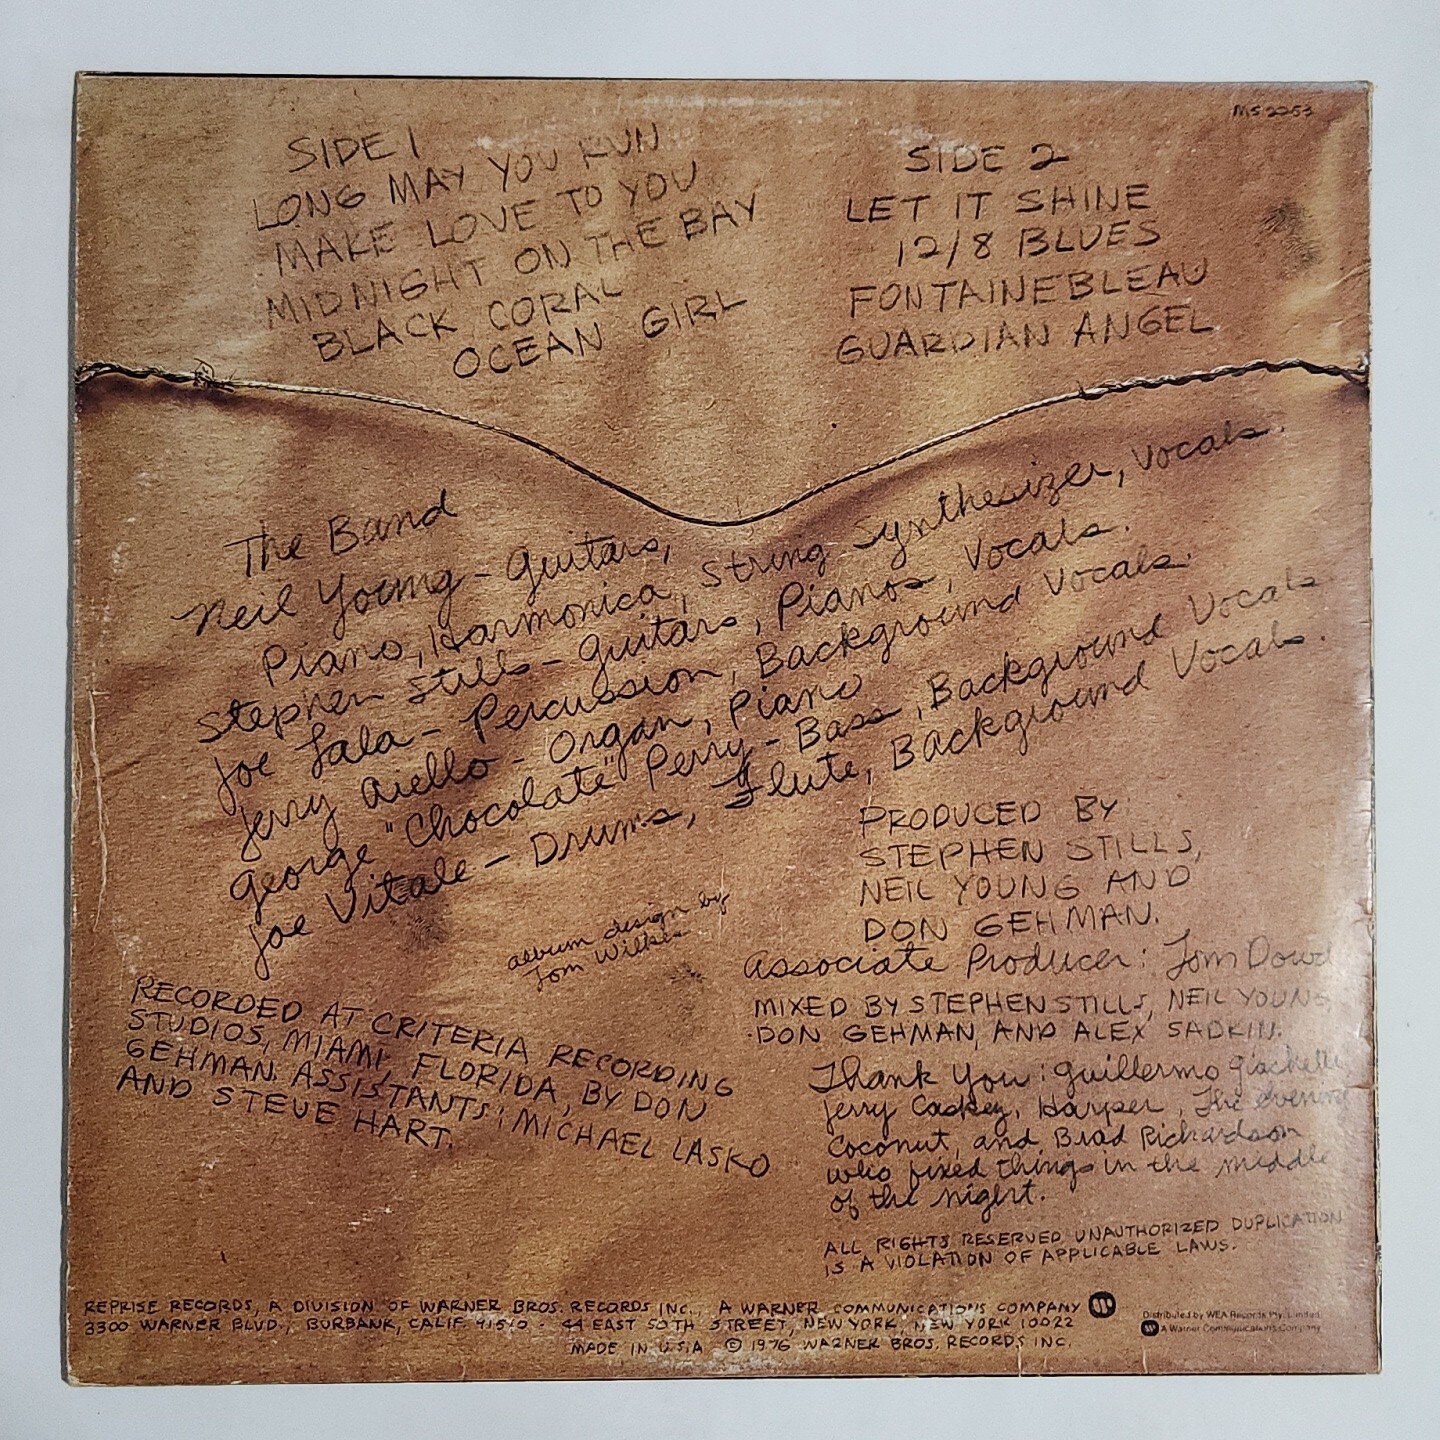 MS 2253
SIDE 1
LONG MAY YOU RUN
MAKE LOVE TO YOU
MIDNIGHT ON THE BAY
BLACK CORAL
OCEAN GIRL
SIDE 2
LET IT SHINE
12/8 BLUES
FONTAINEBLEAU
GUARDIAN ANGEL
The Band
Neil Young - Guitars,
Piano, Harmonica, String Synthesizer, Vocals.
Stephen Stills - Guitars, Pianos, Vocals.
Joe Lala - Percussion, Background Vocals.
Jerry Aiello - Organ, Piano
George "Chocolate" Perry - Bass, Background Vocals
Joe Vitale - Drums, Flute, Background Vocals.
album design by
Tom Wilkes
PRODUCED BY
STEPHEN STILLS,
NEIL YOUNG AND
DON GEHMAN.
Associate Producer: Tom Dowd
MIXED BY STEPHEN STILLS, NEIL YOUNG,
DON GEHMAN, AND ALEX SADKIN.
RECORDED AT CRITERIA RECORDING
STUDIOS, MIAMI, FLORIDA, BY DON
GEHMAN. ASSISTANTS: MICHAEL LASKO
AND STEVE HART.
Thank You: Guillermo Giachetti,
Jerry Caskey, Harper, The evening
Coconut, and Brad Richardson
who fixed things in the middle
of the night.
ALL RIGHTS RESERVED UNAUTHORIZED DUPLICATION
IS A VIOLATION OF APPLICABLE LAWS.
REPRISE RECORDS, A DIVISION OF WARNER BROS. RECORDS INC., A WARNER COMMUNICATIONS COMPANY
3300 WARNER BLVD., BURBANK, CALIF. 91510 · 44 EAST 50TH STREET, NEW YORK, NEW YORK 10022
MADE IN U.S.A © 1976 WARNER BROS. RECORDS INC.
Distributed by WEA Records Pty. Limited
A Warner Communications Company